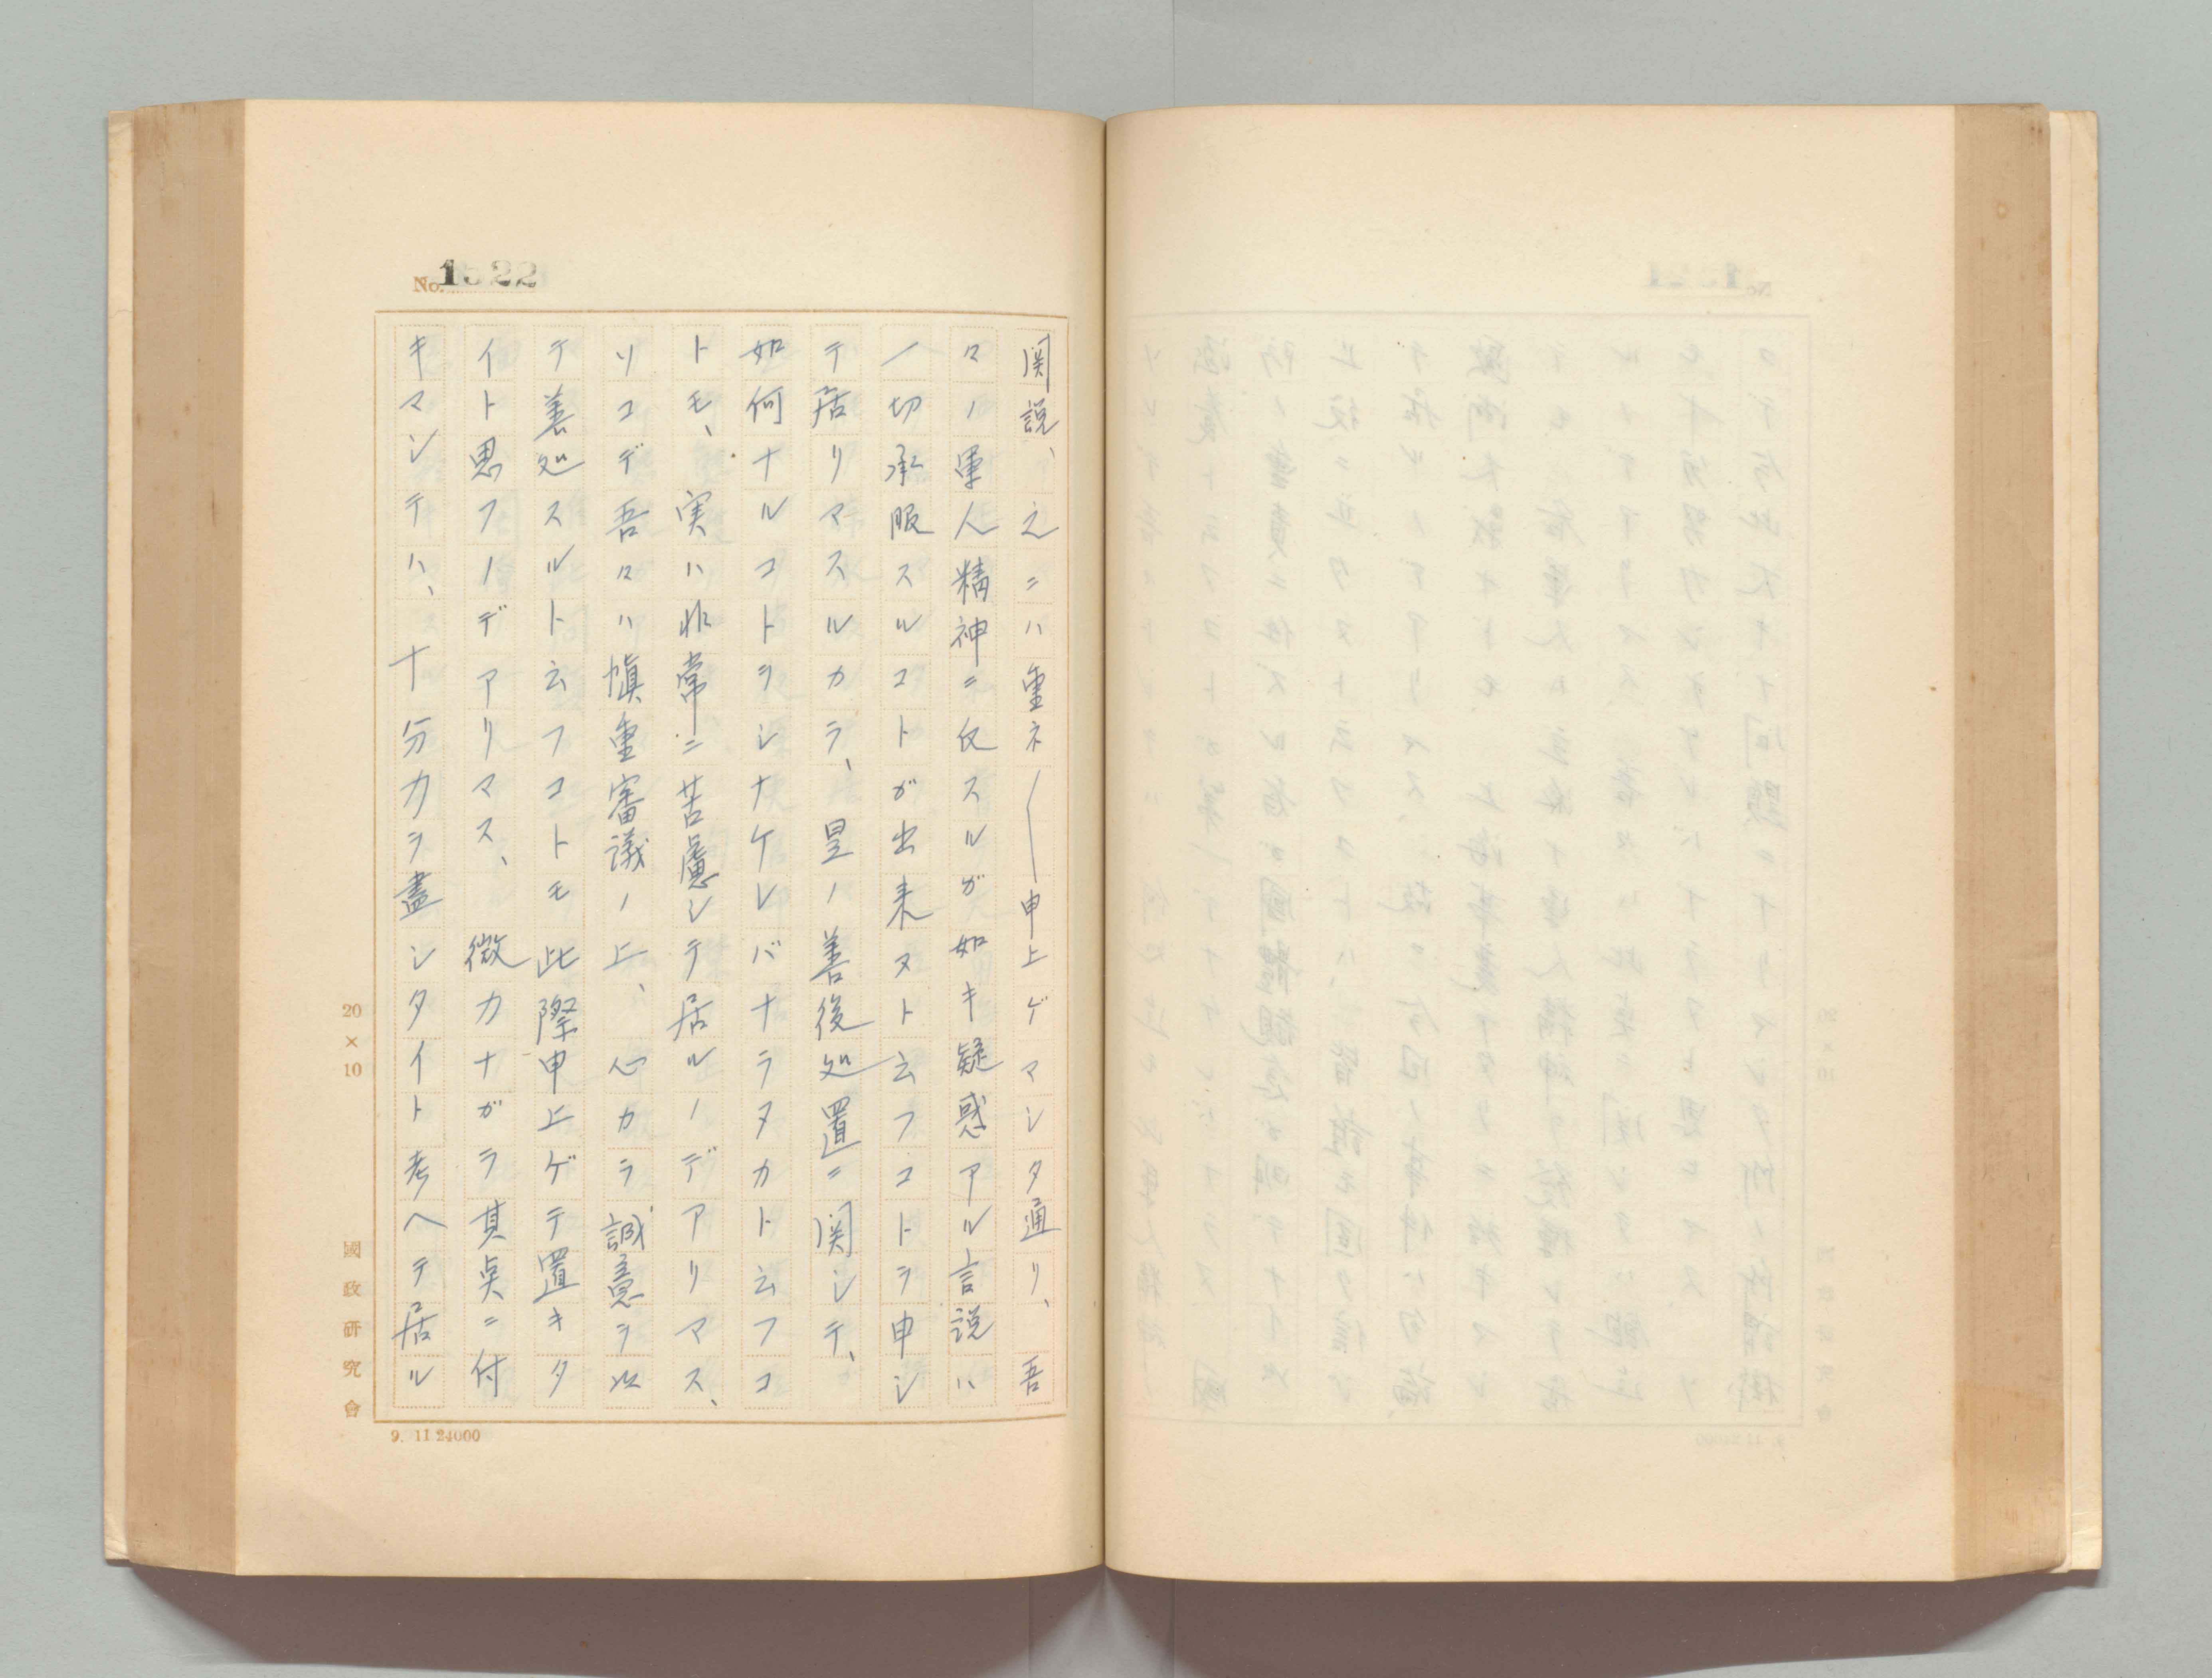 No. 1522
関説、之ニハ重ネ〱申上ゲマシタ通リ、吾
々ノ軍人精神ニ反スルガ如キ疑惑アル言説ハ
一切承服スルコトガ出来ヌト云フコトヲ申シ
テ居リマスルカラ、是ノ善後処置ニ関シテ、
如何ナルコトヲシナケレバナラヌカト云フコ
トモ、実ハ非常ニ苦慮シテ居ルノデアリマス、
ソコデ吾々ハ慎重審議ノ上、心カラ誠意ヲ以
テ善処スルト云フコトモ此際申上ゲテ置キタ
イト思フノデアリマス、微力ナガラ其点ニ付
キマシテハ、十分力ヲ盡シタイト考ヘテ居ル
20×10
國政研究會
9. 11 24000